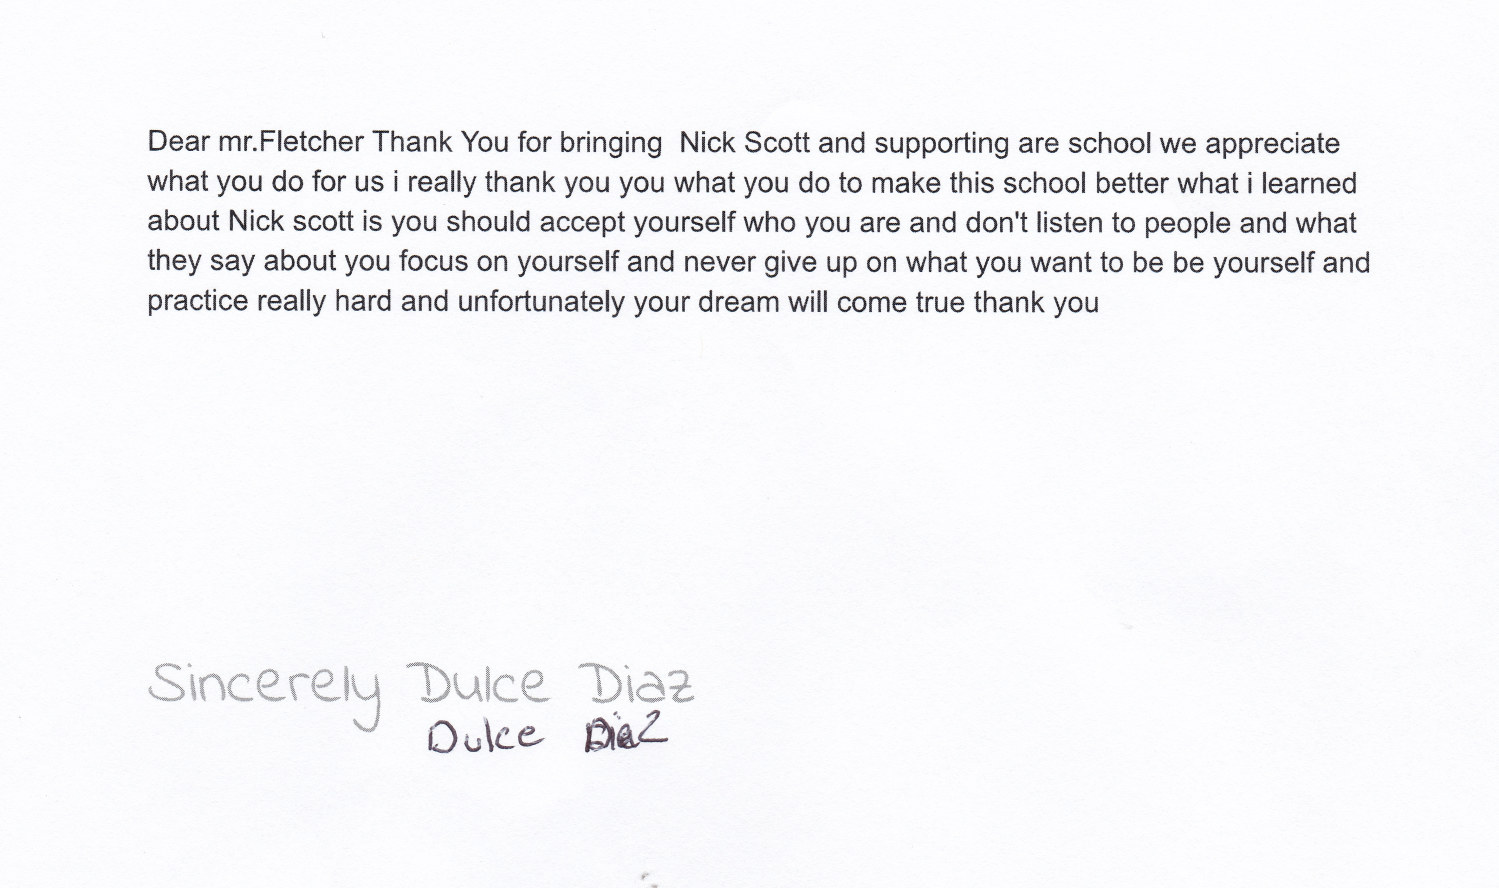 Dear mr.Fletcher Thank You for bringing  Nick Scott and supporting are school we appreciate
what you do for us i really thank you you what you do to make this school better what i learned
about Nick scott is you should accept yourself who you are and don't listen to people and what
they say about you focus on yourself and never give up on what you want to be be yourself and
practice really hard and unfortunately your dream will come true thank you
Sincerely Dulce Diaz
Dulce Diaz